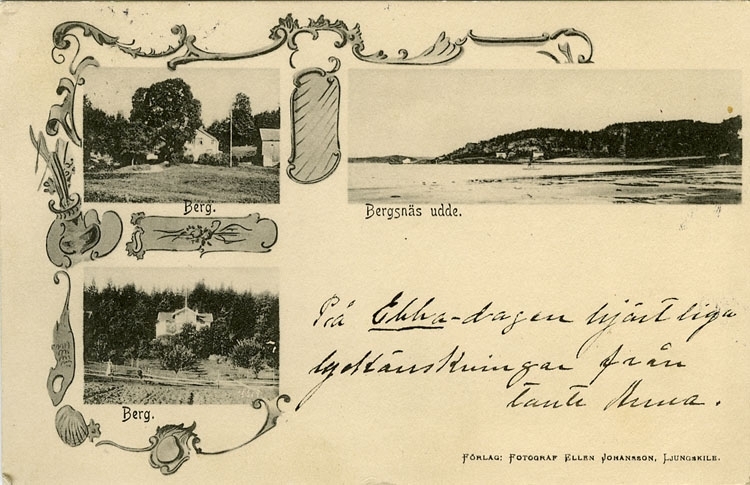 Berg.
Bergsnäs udde.
Berg.
På Ebba-dagen hjärtliga
lyckönskningar från
tante Anna.
FÖRLAG: FOTOGRAF ELLEN JOHANSSON, LJUNGSKILE.